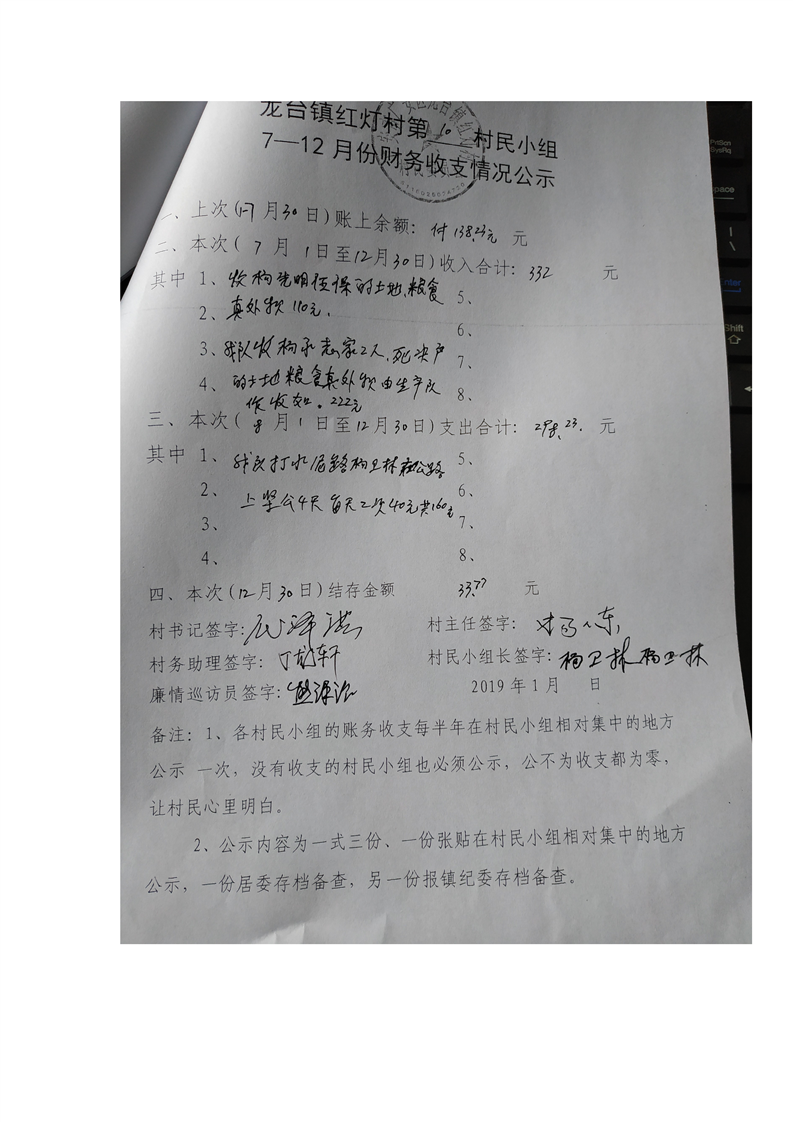 龙台镇红灯村第10村民小组
7—12月份财务收支情况公示
一、上次(1-7月30日)账上余额：付138.23元 元
二、本次( 7 月 1日至12月30日)收入合计：332 元
其中 1、收 五保的土地、粮食
5、
2、 110元.
6、
3、我队收 2人、死 户
7、
4、的土地粮食 由生产队
8、
作收 。222元
三、本次( 8 月 1 日至12月30日)支出合计：298.23. 元
其中 1、我 打水泥路 公路
5、
2、上 4天 每天2次40元共160元
6、
3、
7、
4、
8、
四、本次(12月30日)结存金额 33.77 元
村书记签字：
村主任签字：
村务助理签字：
村民小组长签字：杨卫林 杨卫林
廉情巡访员签字：
2019年1月 日
备注：1、各村民小组的账务收支每半年在村民小组相对集中的地方
公示 一次，没有收支的村民小组也必须公示，公不为收支都为零，
让村民心里明白。
2、公示内容为一式三份、一份张贴在村民小组相对集中的地方
公示，一份居委存档备查，另一份报镇纪委存档备查。
PrtScn
SysRq
Enter
Shift